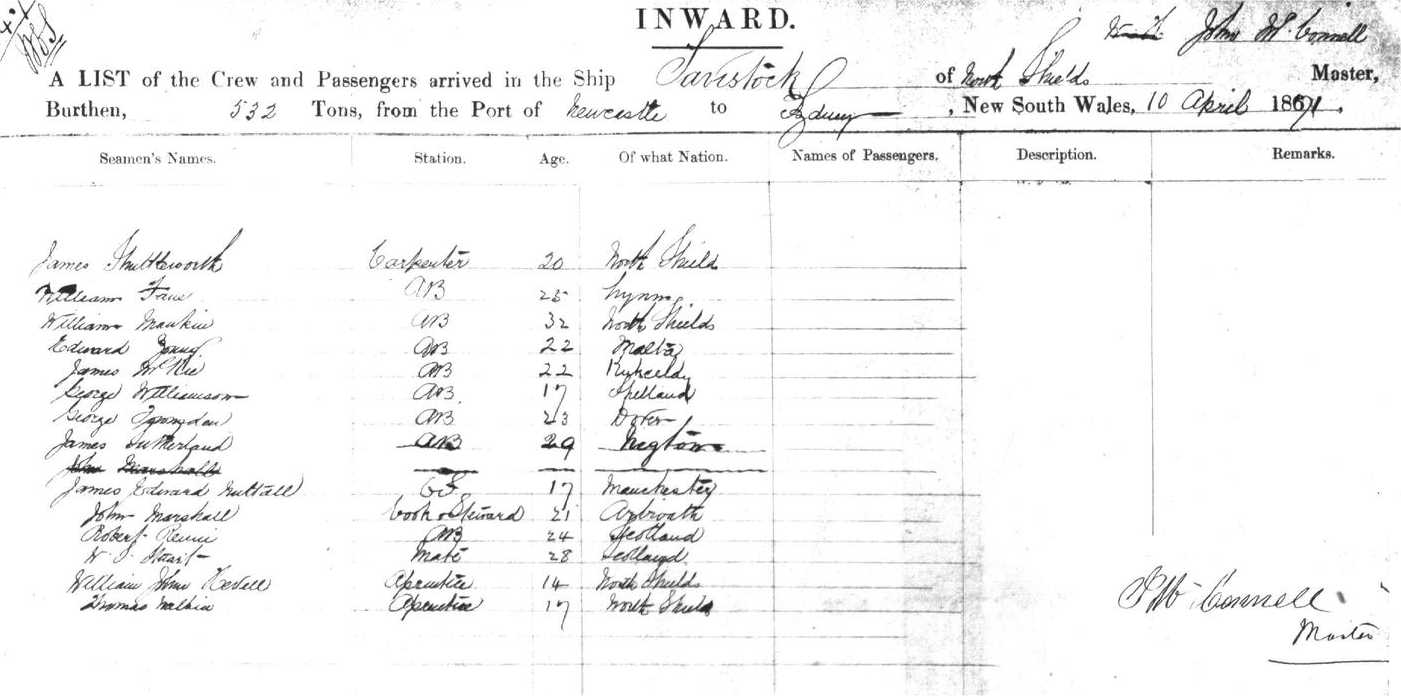 INWARD.
John McConnell
A LIST of the Crew and Passengers arrived in the Ship Tavistock of North Shields Master,
Burthen, 532 Tons, from the Port of Newcastle to Sydney, New South Wales, 10 April 1871.
Seamen's Names. Station. Age. Of what Nation. Names of Passengers. Description. Remarks.
James Shuttleworth Carpenter 20 North Shield
William AB 25 Lynn
William Mankin AB 32 North Shields
Edward AB 22 Malta
James McKie AB 22
George Williamson AB 17
George AB 23 Dover
James Sutherland AB 29
John Marshall
James Edward Nuttall 17 Manchester
John Marshall Cook & Steward 21 Arbroath
Robert Rennie AB 24 Scotland
W Stuart Mate 28 Scotland
William John Aprentice 14 North Shields
Thomas Aprentice 17 North Shields
J McConnell
Master